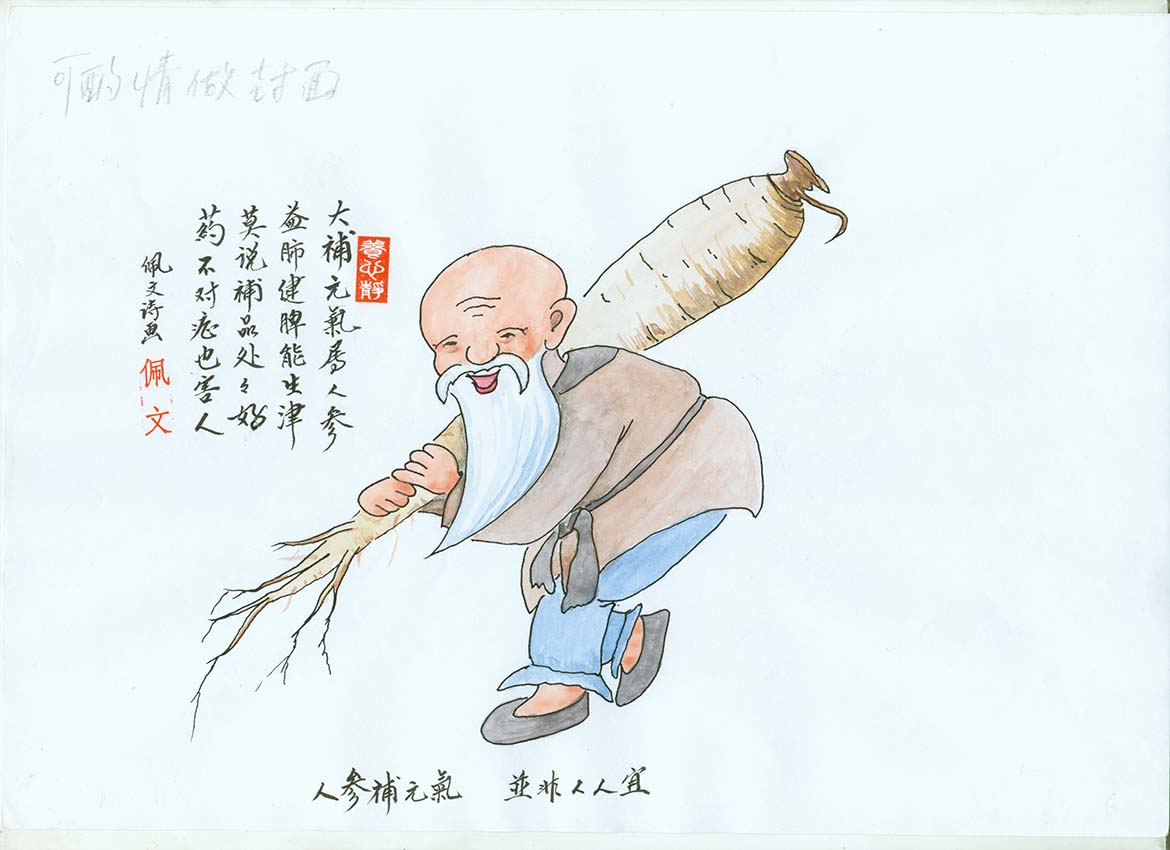 可酌情做封面
养心静
大補元氣属人參
益肺健脾能生津
莫说補品处々好
药不对症也害人
佩文诗画
佩文
人參補元氣　並非人人宜
6